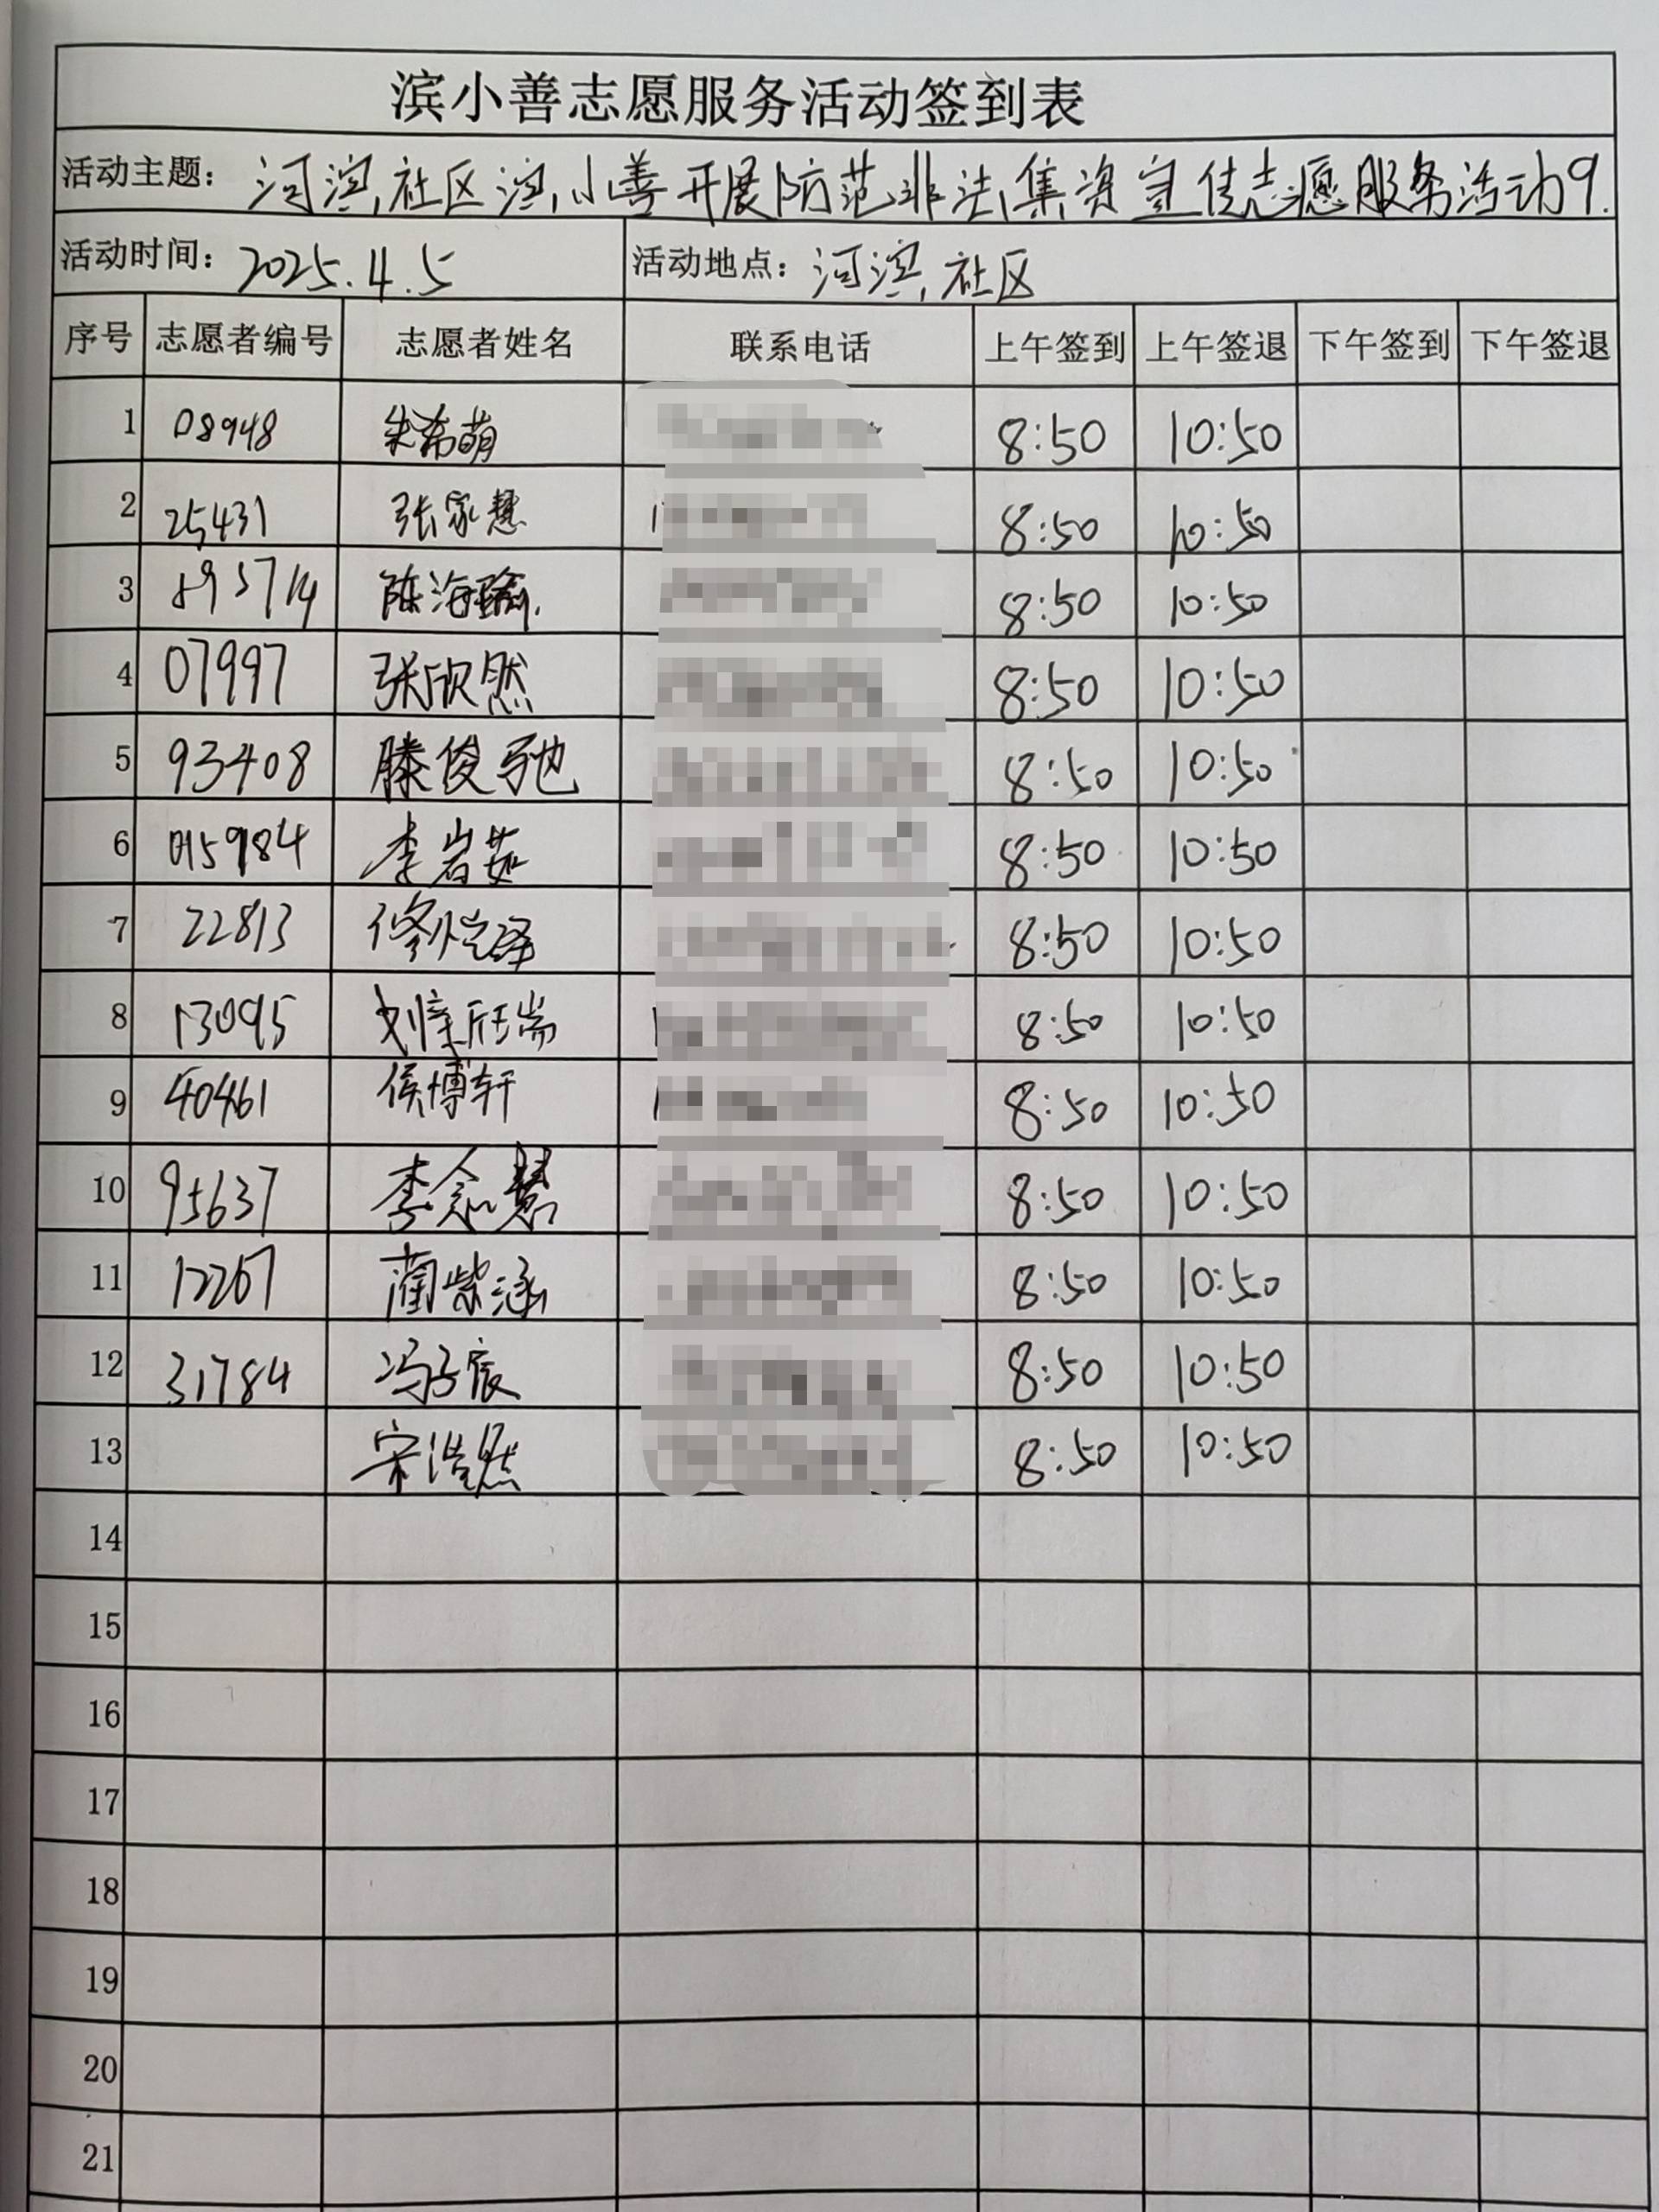 滨小善志愿服务活动签到表
活动主题：河滨社区滨小善开展防范非法集资宣传志愿服务活动9.
活动时间：2025.4.5 活动地点：河滨社区
序号 志愿者编号 志愿者姓名 联系电话 上午签到 上午签退 下午签到 下午签退
1 08948 朱希萌 8:50 10:50
2 25431 张家慧 8:50 10:50
3 陈海瑜 8:50 10:50
4 07997 张欣然 8:50 10:50
5 93408 滕俊驰 8:50 10:50
6 李岩茹 8:50 10:50
7 22813 修恺泽 8:50 10:50
8 13095 8:50 10:50
9 40461 侯博轩 8:50 10:50
10 95637 李念慧 8:50 10:50
11 12267 蔺紫涵 8:50 10:50
12 31784 冯子宸 8:50 10:50
13 宋浩然 8:50 10:50
14
15
16
17
18
19
20
21